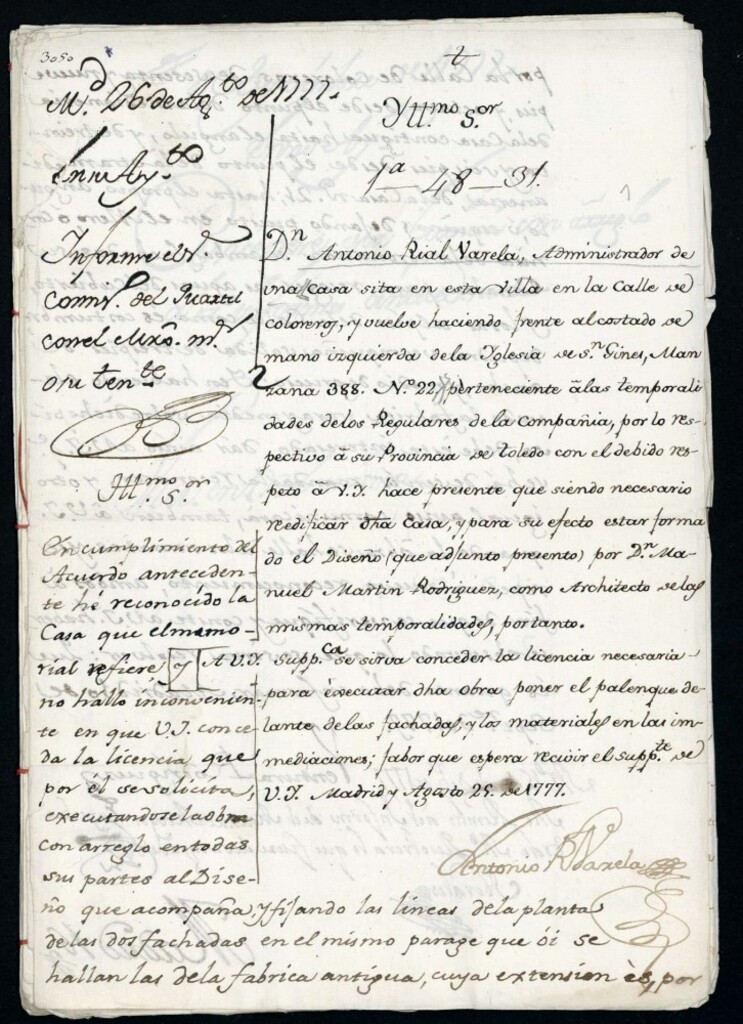 3050
M.d 26 de Ag.to de 1777.
En su Ay.to
Informe el S.r
Comis.o del Quartel
con el Mro. m.r
o su tente
Yll.mo S.or
1a 48 31.
D.n Antonio Rial Varela, Administrador de
una Casa sita en esta Villa en la Calle de
coloreros, y vuelve haciendo frente al costado de
mano izquierda de la Yglesia de S.n Gines, Man
zana 388. N.o 22, perteneciente á las temporali
dades de los Regulares de la Compañia, por lo res-
pectivo á su Provincia de Toledo con el debido res-
peto á V.Y. hace presente que siendo necesario
reedificar dha Casa, y para su efecto estar forma
do el Diseño (que adjunto presento) por D.n Ma-
nuel Martin Rodriguez, como Architecto de las
mismas temporalidades, por tanto.
A V.Y. Supp.ca se sirva conceder la licencia necesaria
para executar dha obra poner el palenque de-
lante de las fachadas, y los materiales en las im-
mediaciones; fabor que espera recivir el supp.te de
V.Y. Madrid y Agosto 25. de 1777.
Antonio R.l Varela
Yll.mo S.or
En cumplimiento del
Acuerdo anteceden-
te hé reconocido la
Casa que el memo-
rial refiere, y
no hallo inconvenien-
te en que V.Y. conce-
da la licencia que
por él se solicita,
executandose la obra
con arreglo en todas
sus partes al Dise-
ño que acompaña, y fijando las lineas de la planta
de las dos fachadas en el mismo parage que oi se
hallan las de la fabrica antigua, cuya extension es, por